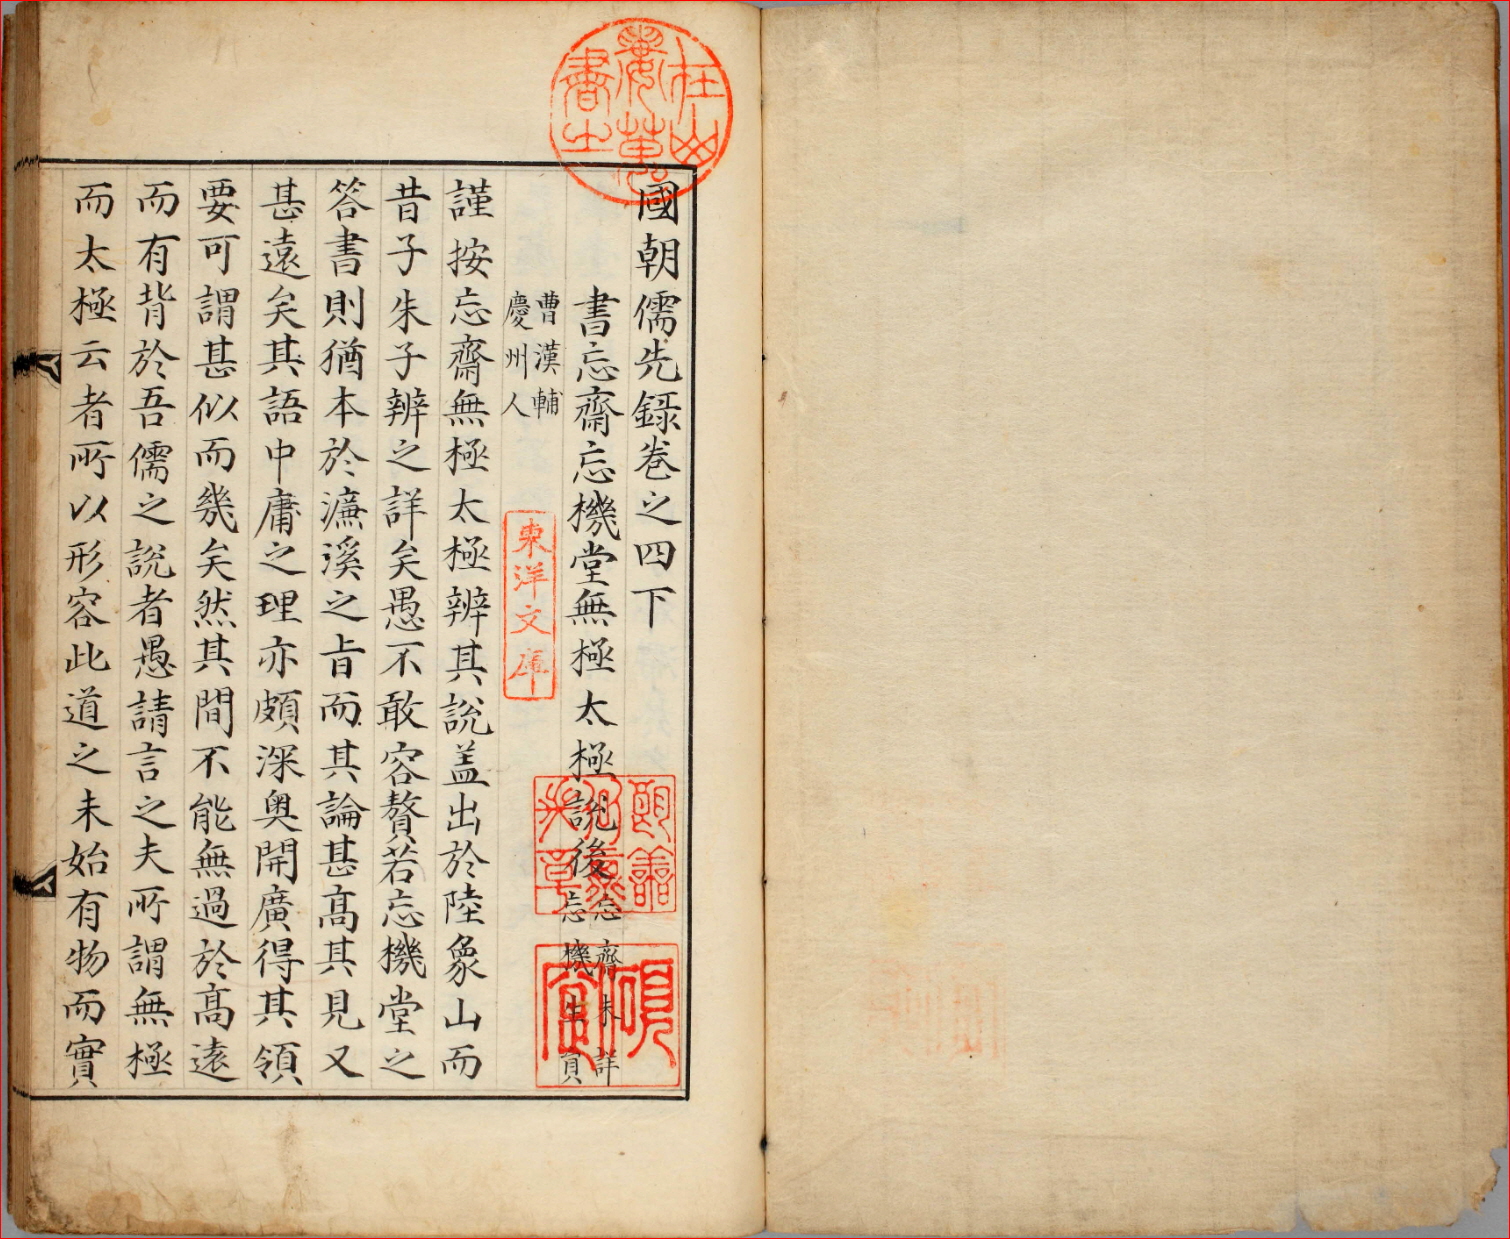 國朝儒先録卷之四下
書忘齋忘機堂無極太極說後忘齋未詳忘機生員
曹漢輔
慶州人
謹按忘齋無極太極辨其說盖出於陸象山而
昔子朱子辨之詳矣愚不敢容贅若忘機堂之
答書則猶本於濂溪之旨而其論甚高其見又
甚遠矣其語中庸之理亦頗深奥開廣得其領
要可謂甚似而幾矣然其間不能無過於高遠
而有背於吾儒之說者愚請言之夫所謂無極
而太極云者所以形容此道之未始有物而實
東洋文庫